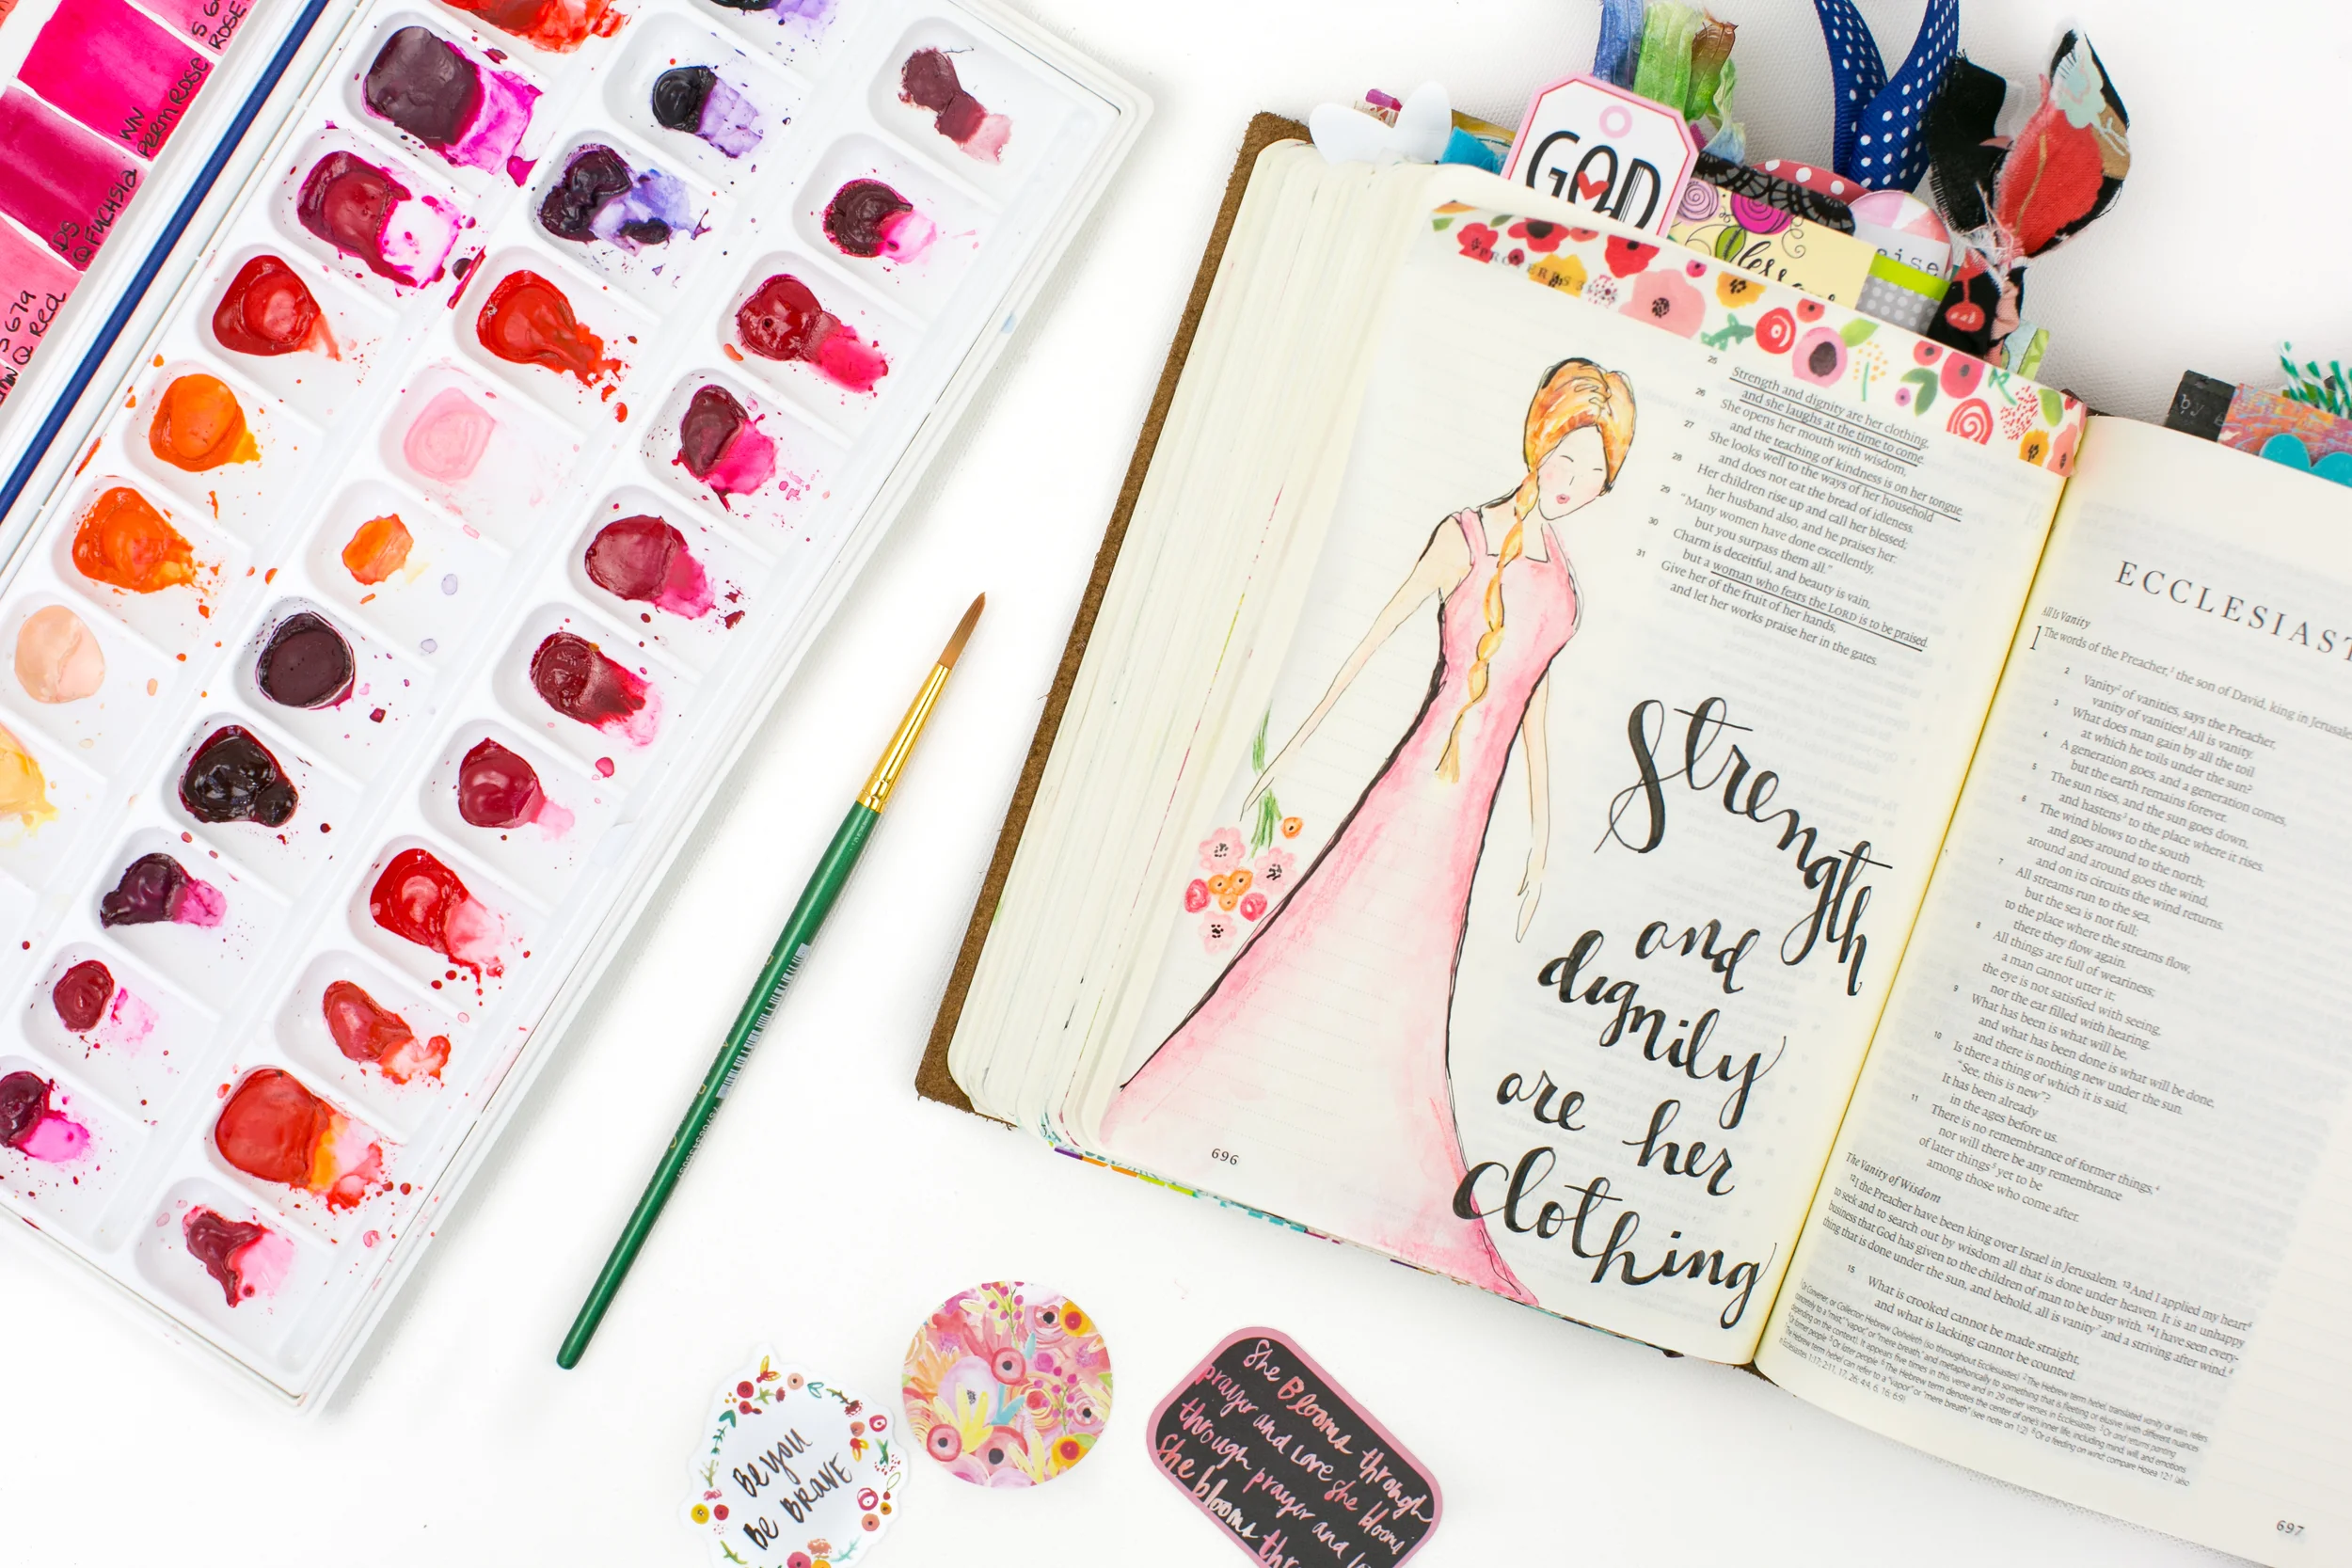 S 6
ROSE
WN
Perm Rose
DS
Q FUCHSIA
S 679
Q Red
GOD
less
rise
by
PROVERBS 3
25
Strength and dignity are her clothing,
and she laughs at the time to come.
26
She opens her mouth with wisdom,
and the teaching of kindness is on her tongue.
27
She looks well to the ways of her household
and does not eat the bread of idleness.
28
Her children rise up and call her blessed;
her husband also, and he praises her:
29
“Many women have done excellently,
but you surpass them all.”
30
Charm is deceitful, and beauty is vain,
but a woman who fears the LORD is to be praised.
31
Give her of the fruit of her hands,
and let her works praise her in the gates.
Strength
and
dignity
are her
clothing
696
ECCLESIAST
All Is Vanity
1 The words of the Preacher,1 the son of David, king in Jerusale
2 Vanity2 of vanities, says the Preacher,
vanity of vanities! All is vanity.
3 What does man gain by all the toil
at which he toils under the sun?
4 A generation goes, and a generation comes,
but the earth remains forever.
5 The sun rises, and the sun goes down,
and hastens3 to the place where it rises.
6 The wind blows to the south
and goes around to the north;
around and around goes the wind,
and on its circuits the wind returns.
7 All streams run to the sea,
but the sea is not full;
to the place where the streams flow,
there they flow again.
8 All things are full of weariness;
a man cannot utter it;
the eye is not satisfied with seeing,
nor the ear filled with hearing.
9 What has been is what will be,
and what has been done is what will be done,
and there is nothing new under the sun.
10 Is there a thing of which it is said,
“See, this is new”?
It has been already
in the ages before us.
11 There is no remembrance of former things,4
nor will there be any remembrance
of later things5 yet to be
among those who come after.
The Vanity of Wisdom
12 I the Preacher have been king over Israel in Jerusalem. 13 And I applied my heart6
to seek and to search out by wisdom all that is done under heaven. It is an unhappy
business that God has given to the children of man to be busy with. 14 I have seen every-
thing that is done under the sun, and behold, all is vanity7 and a striving after wind.8
15 What is crooked cannot be made straight,
and what is lacking cannot be counted.
697
Be you
Be BRAVE
She Blooms through
prayer and love she blooms
through prayer and lo
She blooms thr